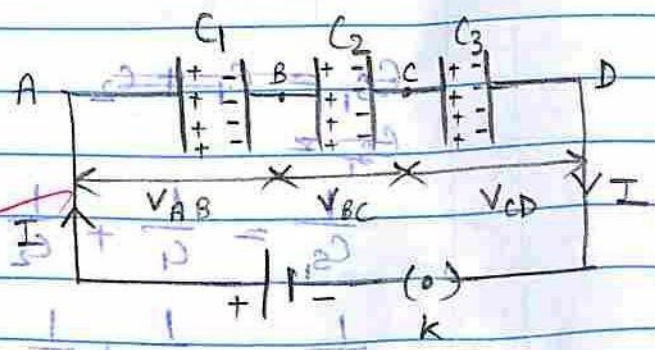 C₁ C₂ C₃
A B C D
+ - + - + -
+ - + - + -
+ - + - + -
+ - + - + -
V_AB V_BC V_CD
I I
+ - (o)
K